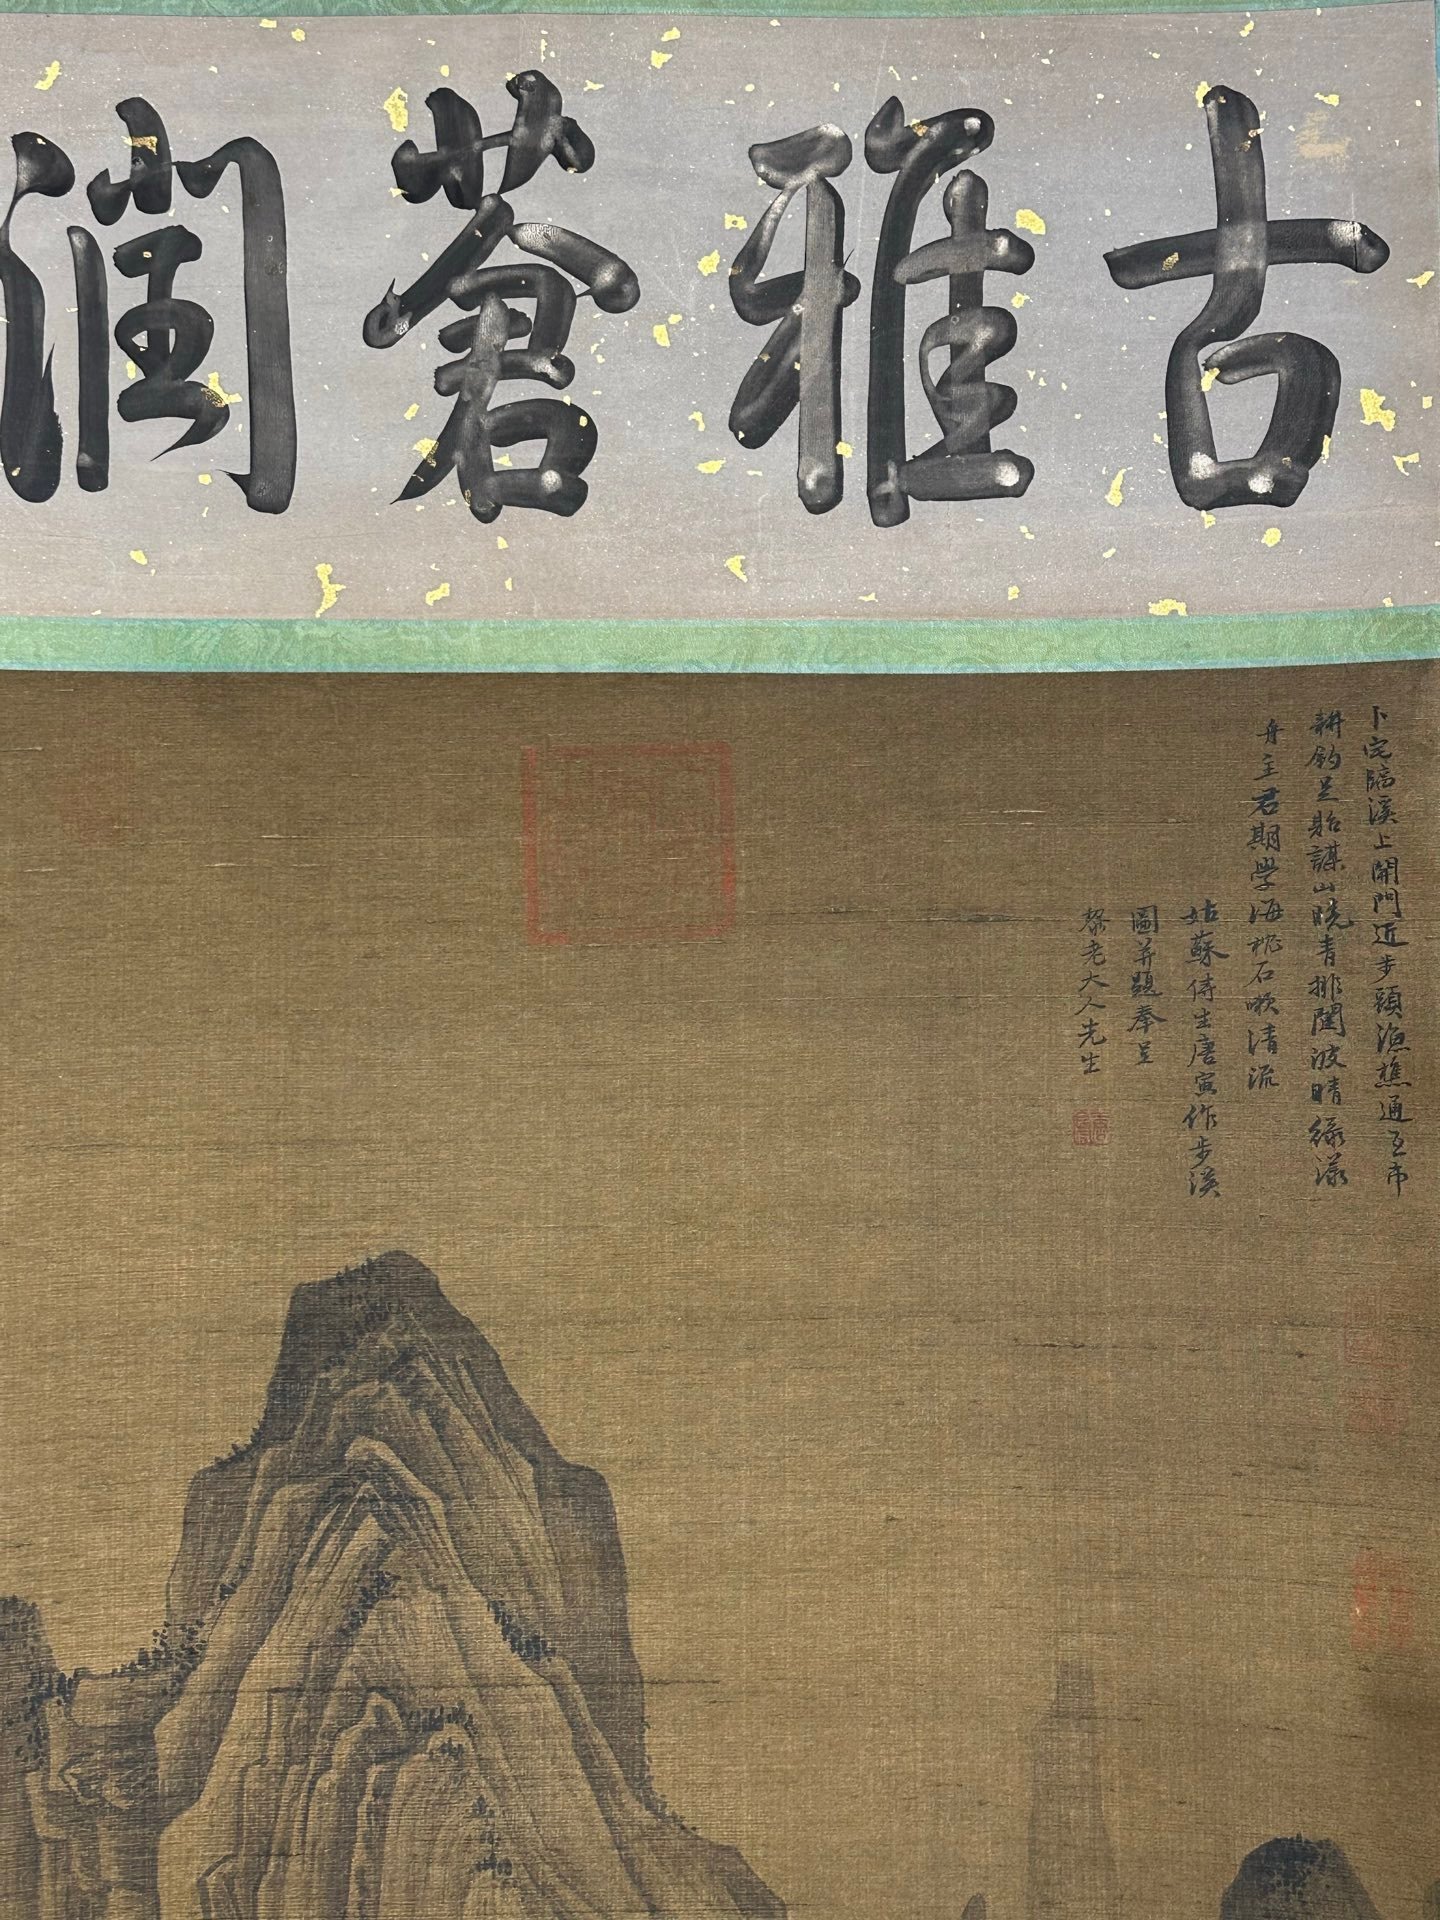 古雅蒼潤
卜宅臨溪上開門近步頭漁樵通互市
耕釣足貽謀山曉青排闥波晴綠漾
舟主君期學海枕石嗽清流
姑蘇侍生唐寅作步溪
圖并題奉呈
黎老大人先生